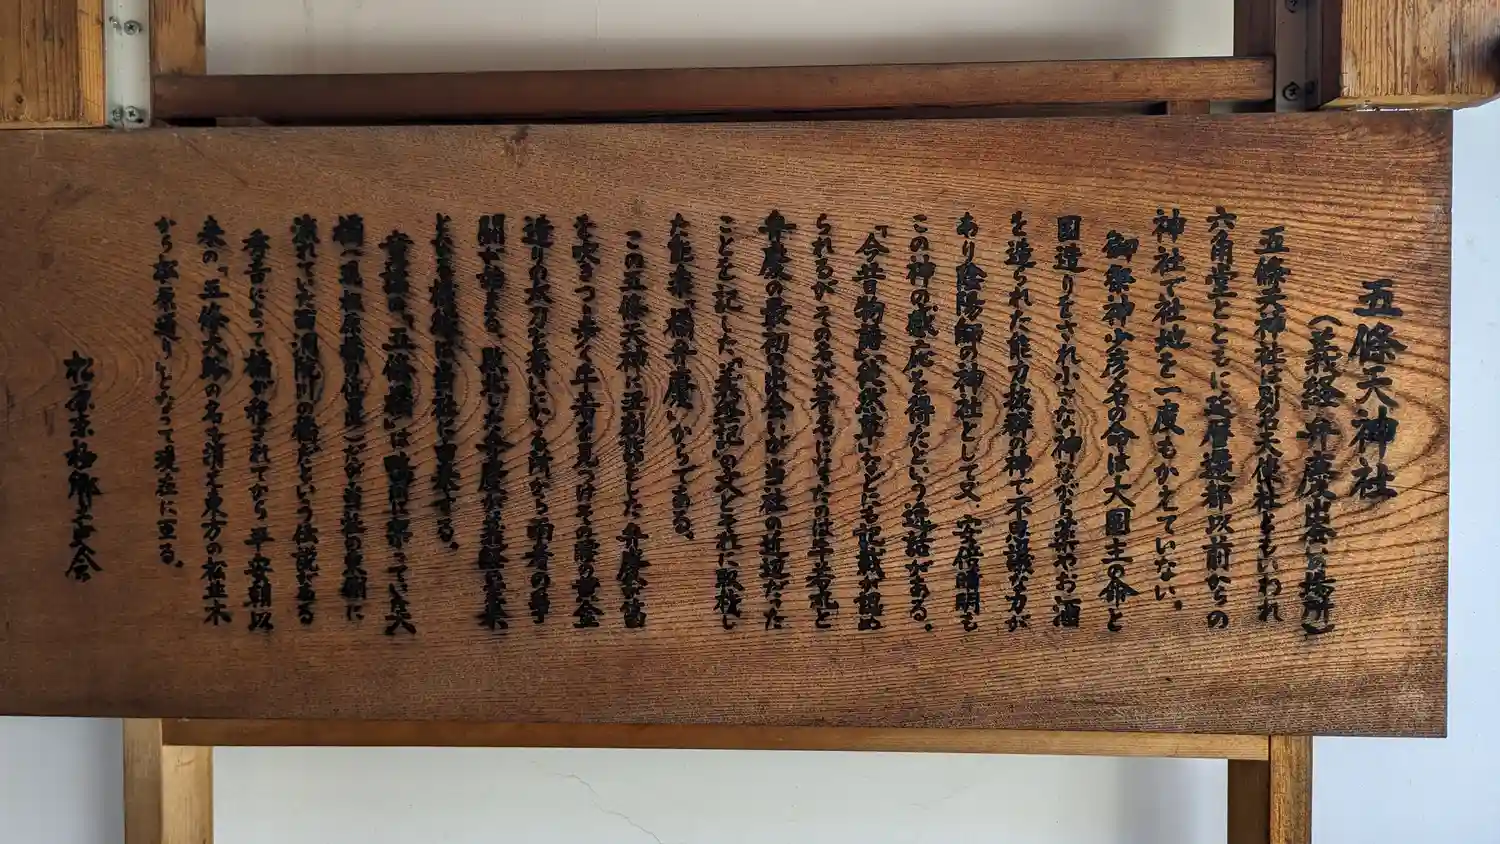 五條天神社
(義経・弁慶出会いの場所)
五條天神社は別名天使社ともいわれ
六角堂とともに平安遷都以前からの
神社で社地を一度もかえていない。
御祭神少彦名の命は大国主の命と
国造りをされ小さな神ながら薬やお酒
を造られた能力抜群の神で不思議な方が
あり陰陽師の神社として又、安倍晴明も
この神の感応を得たという逸話がある。
「今昔物語」「徒然草」などにも記載が認め
られるがその名が著名になったのは牛若丸と
弁慶の最初の出会いが当社の近辺だった
ことを記した「義経記」の文とそれに取材し
た能楽「橋弁慶」からである。
この五條天神に丑刻詣をした弁慶が笛
を吹きつつ歩く牛若を見つけその際の黄金
造りの太刀を奪いにいる所から両者の争
闘が始まる。敗北した弁慶が義経の家来
となる機縁は当社に由来する。
京謡の「五條橋」は鴨川に架っていた大
橋(現松原橋の位置)だが当社の東側に
流れていた西洞院川の橋だという伝説がある
秀吉によって橋が移されてから平安朝以
来の「五條大路」の名も消え東方の松並木
から松原通りとなって現在に至る。
松原京極商工会